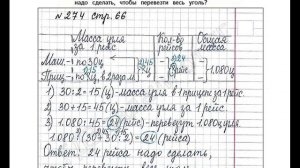 надо сделать, чтобы перевезти весь уголь?
№ 274 стр. 66
Масса угля за 1 рейс
Кол-во рейсов
Общая масса
Маш. - по 30ц
Приц. - по ?ц, в 2 раза м.
45
?ц
24
? рейс.
1.080ц
1) 30:2=15(ц)-масса угля в 1 прицепе за 1 рейс.
2) 30+15=45(ц)-масса угля за 1 рейс.
3) 1.080:45=24(рейс)-перевезут 1.080ц угля.
1.080:(30+30:2)=24(рейса)
Ответ: 24 рейса надо сделать,
чтобы перевезти весь